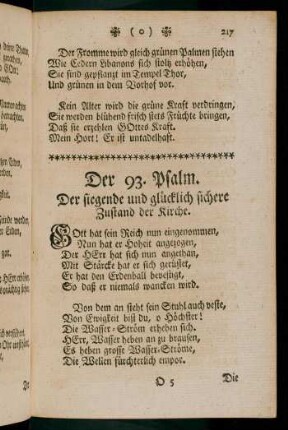 ( o ) 217
Der Fromme wird gleich grünen Palmen stehen
Wie Cedern Libanons sich stolz erhöhen,
Sie sind gepflanzt im Tempel Thor,
Und grünen in dem Vorhof vor.
Kein Alter wird die grüne Kraft verdringen,
Sie werden blühend frisch stets Früchte bringen,
Daß sie erzehlen GOttes Kraft.
Mein Hort! Er ist untadelhaft.
Der 93. Psalm.
Der siegende und glücklich sichere
Zustand der Kirche.
GOtt hat sein Reich nun eingenommen,
Nun hat er Hoheit angezogen,
Der HErr hat sich nun angethan,
Mit Stärcke hat er sich gerüstet,
Er hat den Erdenball bevestigt,
So daß er niemals wancken wird.
Von dem an steht sein Stuhl auch veste,
Von Ewigkeit bist du, o Höchster!
Die Wasser-Ström erheben sich.
HErr, Wasser heben an zu brausen,
Es heben grosse Wasser-Ströme,
Die Wellen fürchterlich empor.
O 5 Die